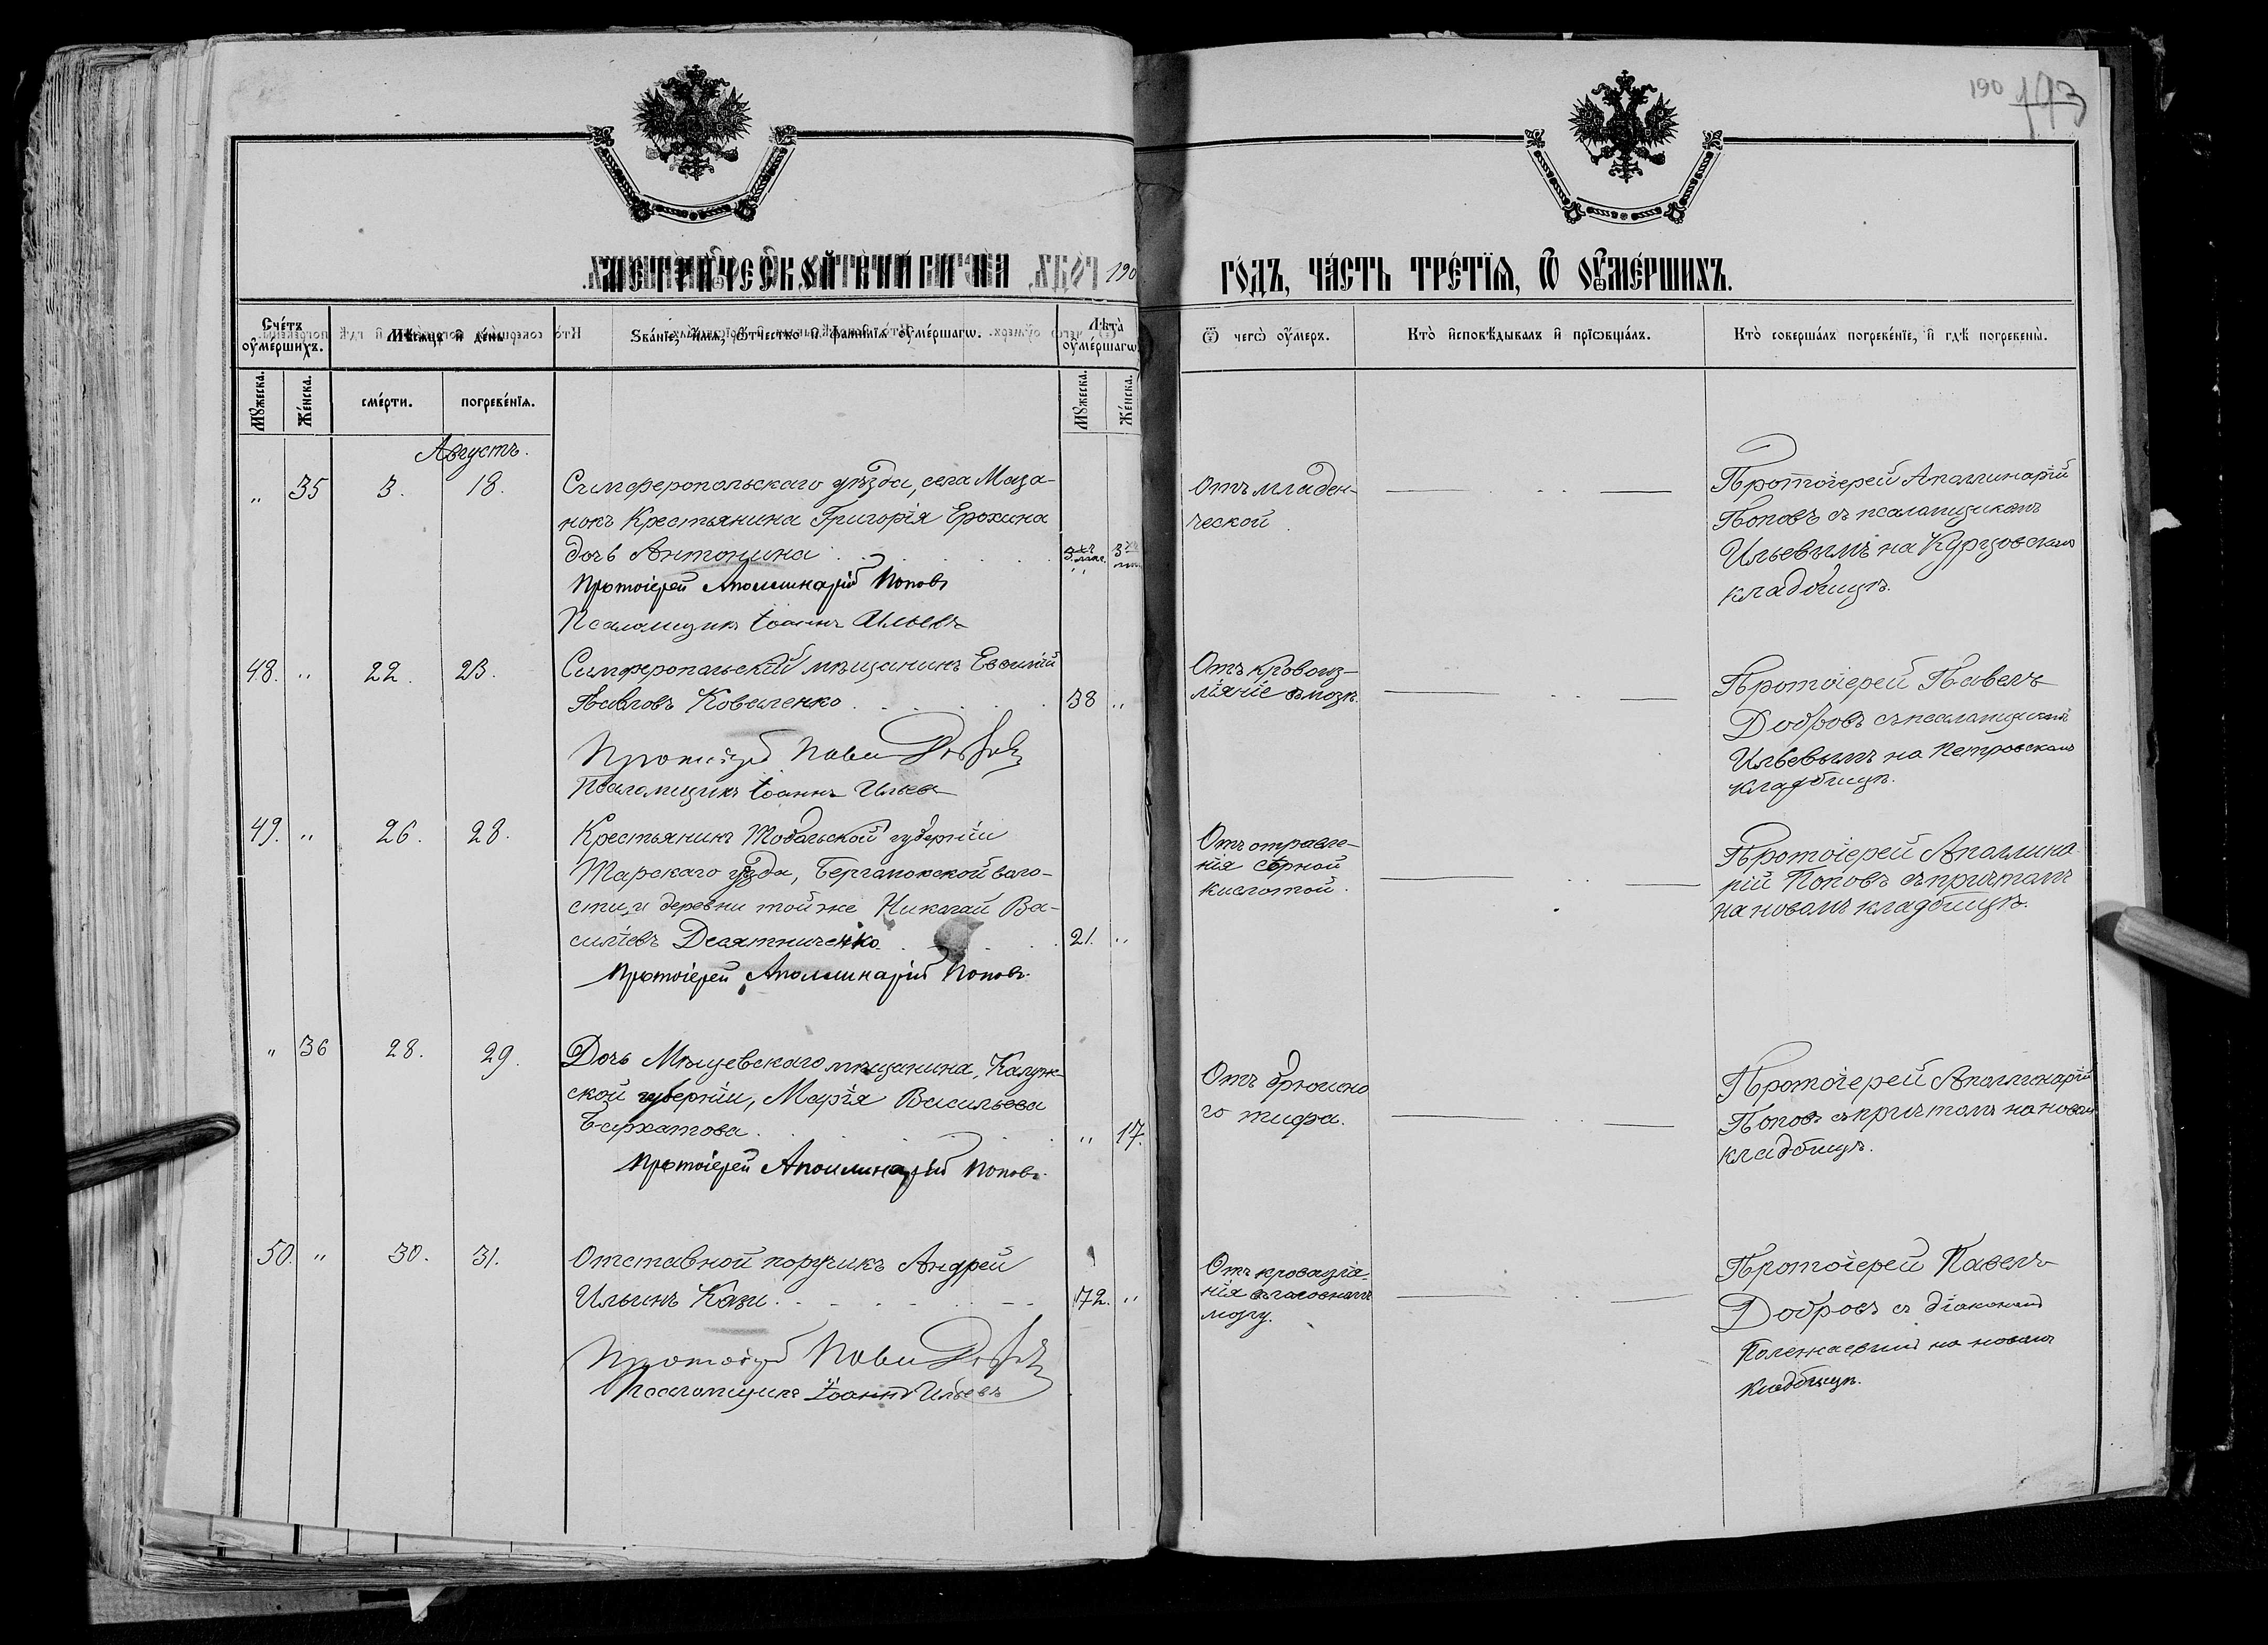 190 193
МЕТРИЧЕСКОЙ КНИГИ НА 190
ГО́ДЪ, ЧА́СТЬ ТРЕ́ТЇѦ, Ѿ ОУ҆МЕ́РШИХЪ.
Сче́тъ оу҆ме́ршихъ.
Мѣ́сѧцъ и҆ де́нь
Зва́нїе, и҆́мѧ, ѻ҆́тчество и҆ фами́лїѧ оу҆ме́ршагѡ.
Лѣ́та оу҆ме́ршагѡ
Ѿ чегѡ̀ оу҆́меръ.
Кто̀ и҆сповѣ́дывалъ и҆ прїѡбща́лъ.
Кто̀ соверша́лъ погребе́нїе, и҆ гдѣ̀ погребены̀.
Мꙋ́жеска.
Же́нска.
сме́рти.
погребе́нїѧ.
Мꙋ́жеска.
Же́нска.
Августъ.
„ 35 3. 18. Симферопольскаго уѣзда, села Маза-
нокъ Крестьянина Григорія Ерохина
дочь Антонина
Протоіерей Аполлинарій Поповъ
Псаломщикъ Іоаннъ Ильевъ
Отъ младен-
ческой
Протоіерей Аполлинарій
Поповъ съ псаломщикомъ
Ильевымъ на Курцовскомъ
кладбищѣ.
48. „ 22. 23. Симферопольскій мѣщанинъ Евфимій
Павловъ Коваленко 38 „
Протоіерей Павелъ Добровъ
Псаломщикъ Іоаннъ Ильевъ
Отъ кровоиз-
ліяніе въ мозгъ.
Протоіерей Павелъ
Добровъ съ псаломщикомъ
Ильевымъ на Петровскомъ
кладбищѣ.
49. „ 26. 28. Крестьянинъ Тобольской губерніи
Тарскаго уѣзда, Бергамокской воло-
сти, и деревни той же Николай Ва-
силіевъ Десятниченко 21. „
Протоіерей Аполлинарій Поповъ.
Отъ отравле-
нія сѣрной
кислотой.
Протоіерей Аполлина
рій Поповъ съ причтомъ
на новомъ кладбищѣ.
„ 36 28. 29. Дочь Мѣщевскаго мѣщанина, Калуж-
ской губерніи, Марія Васильева
Бархатова „ 17.
Протоіерей Аполлинарій Поповъ.
Отъ брюшно
го тифа.
Протоіерей Аполлинарій
Поповъ съ причтомъ на новомъ
кладбищѣ.
50. „ 30. 31. Отставной поручикъ Андрей
Ильинъ Кази 72. „
Протоіерей Павелъ Добровъ
Псаломщикъ Іоаннъ Ильевъ
Отъ кровоизлія-
нія въ головномъ
мозгу.
Протоіерей Павелъ
Добровъ съ діакономъ
на новомъ
кладбищѣ.